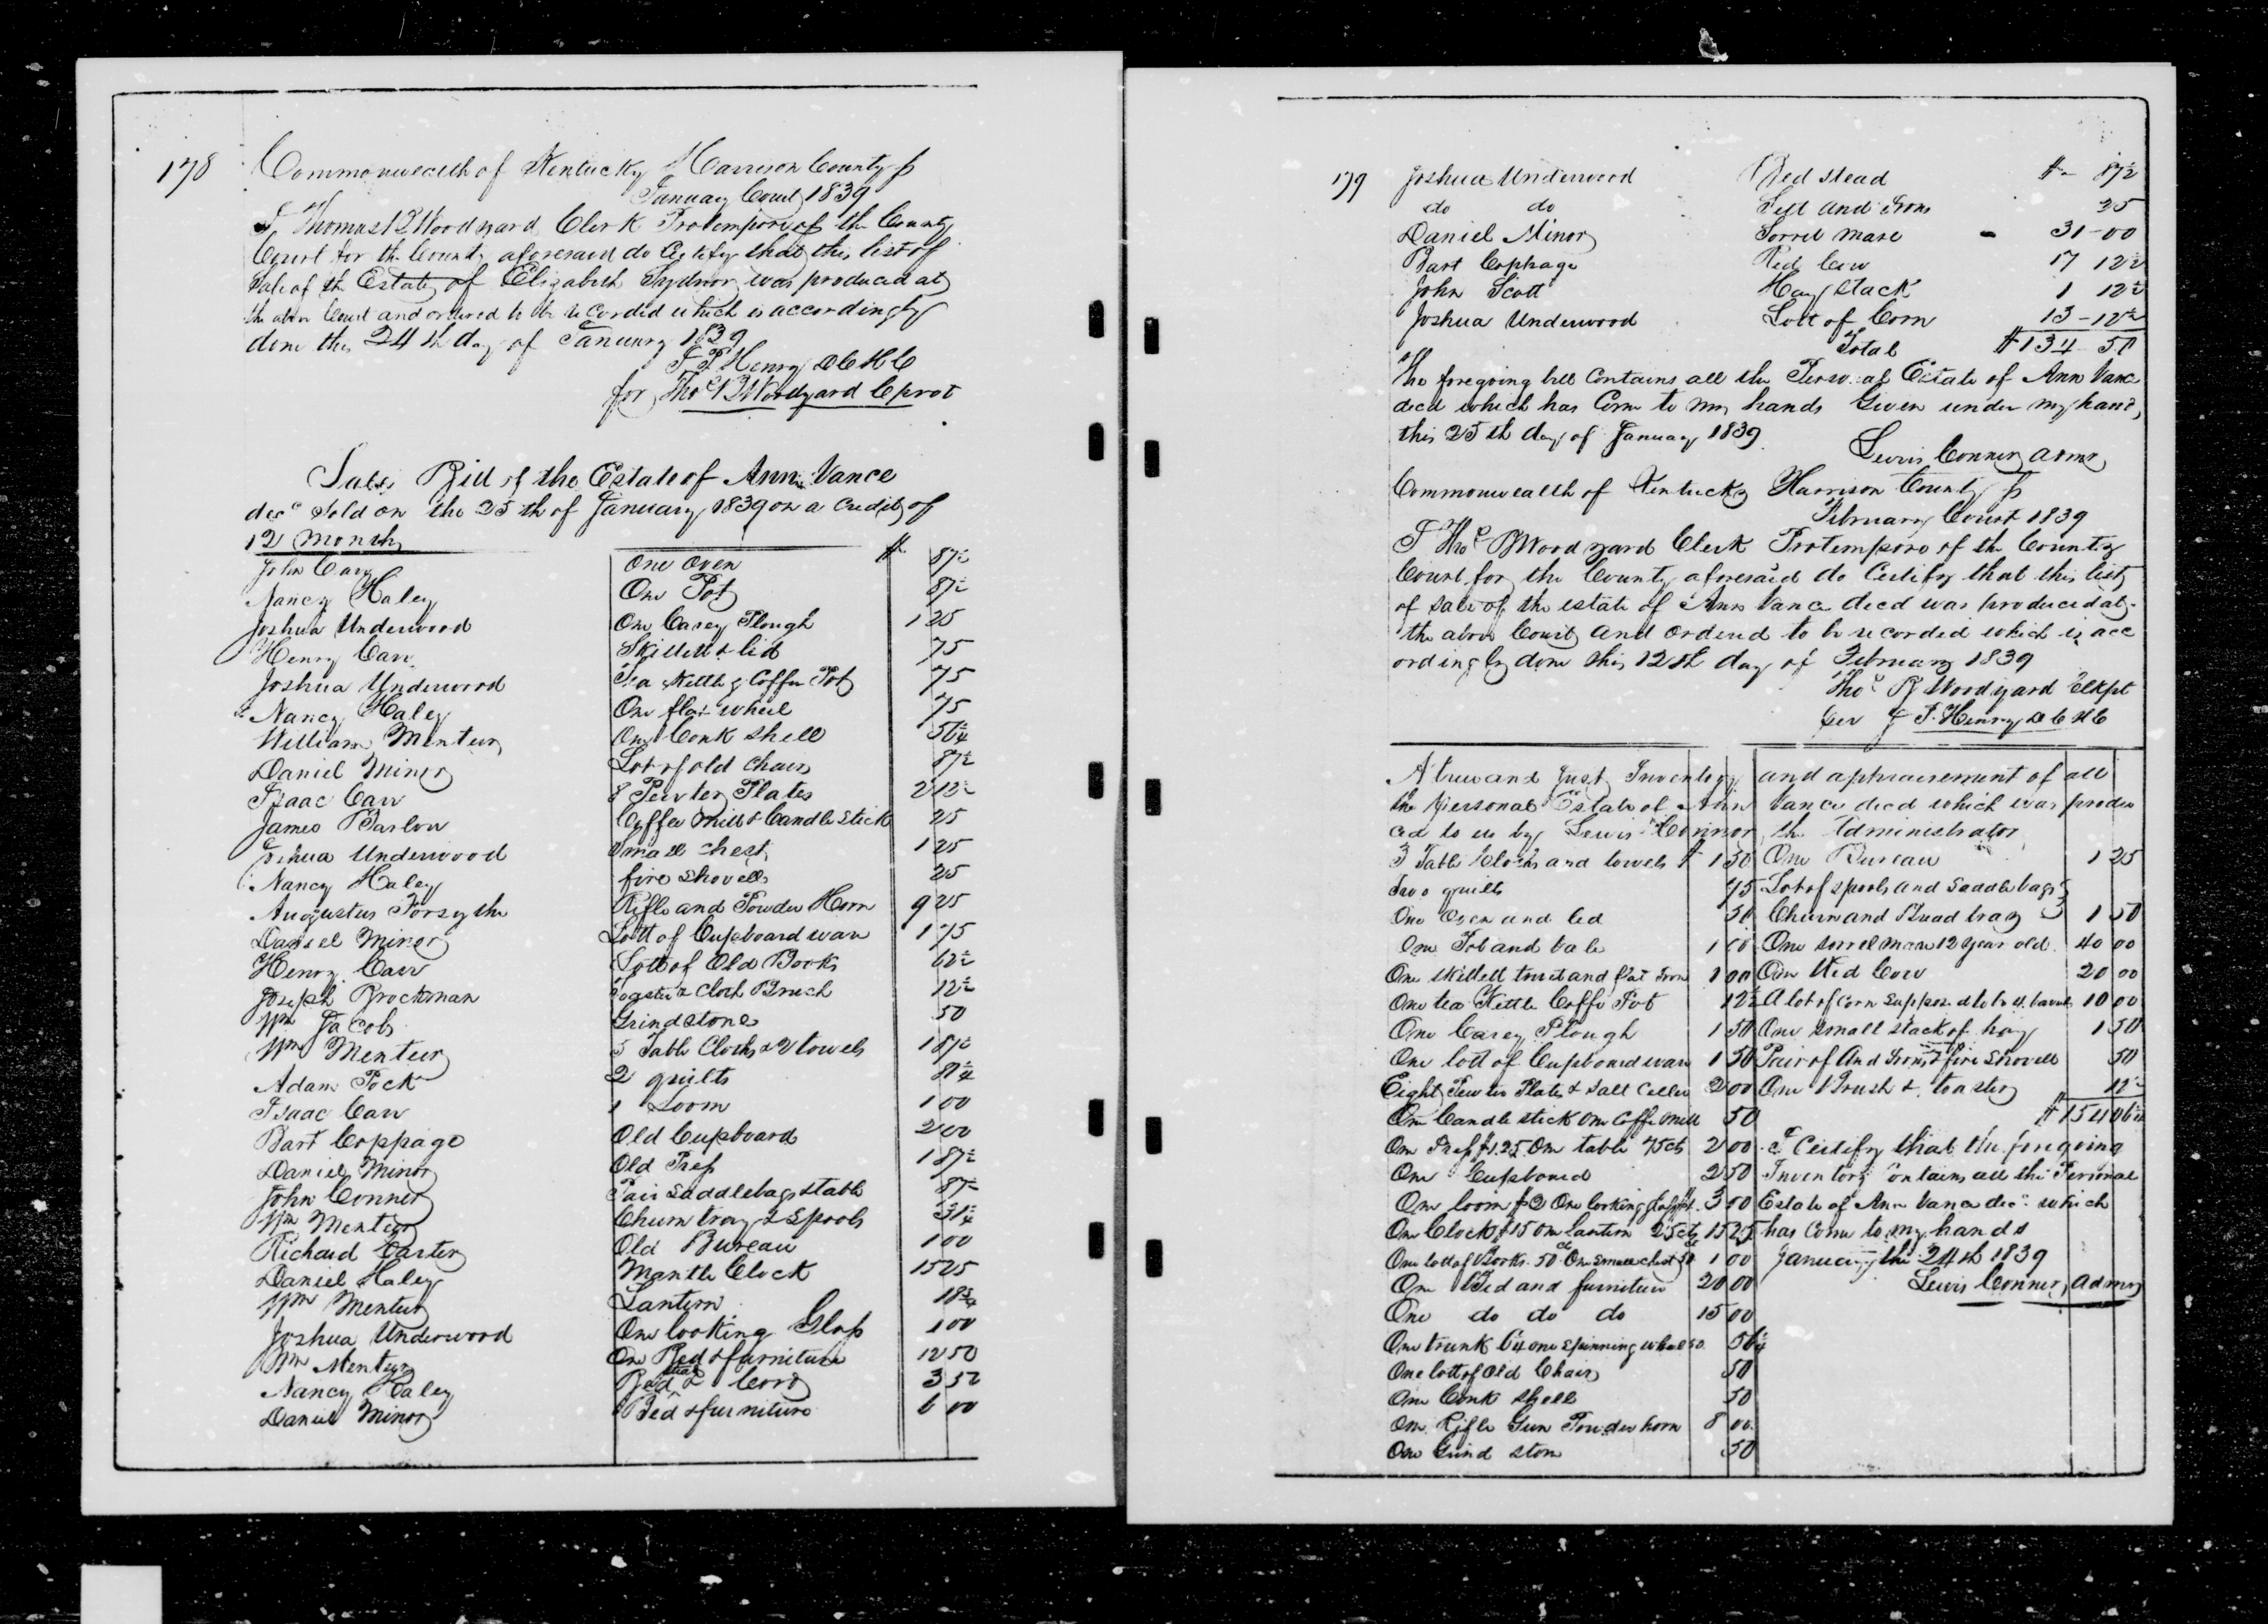 178
Commonwealth of Kentucky Harrison County ss
January Court 1839
I Thomas B Woodyard Clerk Protempore of the County
Court for the County aforesaid do Certify that this list of
Sale of the Estate of Elizabeth Sydnor was produced at
the above Court and ordered to be recorded which is accordingly
done this 24th day of January 1839
J F Henry D C H C
for Thos B Woodyard C prot
Sale Bill of the Estate of Ann Vance
decd Sold on the 25th of January 1839 on a Credit of
12 Months
John Carr One Oven $ 87½
Nancy Haley One Pot 87½
Joshua Underwood One Carey Plough 1 25
Henry Carr Skillet & lid 75
Joshua Underwood Tea Kettle & Coffee Pot 75
Nancy Haley One flax wheel 75
William Mentur One Conk Shell 56¼
Daniel Minor Lot of old Chairs 87½
Isaac Carr 8 Pewter Plates 2 12½
James Barlow Coffee Mill & Candle Stick 25
Joshua Underwood Small Chest 1 25
Nancy Haley fire Shovell 25
Augustus Forsythe Rifle and Powder Horn 9 25
Daniel Minor Lott of Cupboard ware 1 75
Henry Carr Lott of Old Books 62½
Joseph Brockman Toaster & Cloth Brush 12½
Wm Jacobs Grindstone 50
Wm Mentur 3 Table Cloths & 2 towels 1 87½
Adam Pock 2 quilts 81¼
Isaac Carr 1 Loom 1 00
Bart Coppage Old Cupboard 2 00
Daniel Minor Old Press 1 87½
John Conner Pair Saddlebags & table 87½
Wm Mentur Churn tray & Spools 31¼
Richard Carter Old Bureau 1 00
Daniel Haley Mantle Clock 15 25
Wm Mentur Lantern 18¾
Joshua Underwood One looking Glass 1 00
Wm Mentur One Bed & furniture 12 50
Nancy Haley Bed stead & Cord 3 52
Daniel Minor Bed & furniture 6 00
179
Joshua Underwood Bed stead $ 87½
do do Sett And Irons 25
Daniel Minor Sorrel Mare 31-00
Bart Cophage Red Cow 17 12½
John Scott Hay Stack 1 12½
Joshua Underwood Lott of Corn 13-12½
Total $134-51
The foregoing bill Contains all the Personal Estate of Ann Vance
decd which has Come to my hands Given under my hand
this 25th day of January 1839
Lewis Conner Admr
Commonwealth of Kentucky Harrison County ss
February Court 1839
I Thos B Woodyard Clerk Protempore of the County
Court for the County aforesaid do Certify that this list
of sale of the estate of Ann Vance decd was produced at
the above Court and ordered to be recorded which is acc
ordingly done this 12th day of February 1839
Thos B Woodyard Clkpt
per J F Henry D C H C
A true and Just Inventory and aphraisement of all
the personal Estate of Ann Vance decd which was produ
ced to us by Lewis Connor the Administrator
3 Table Cloths and towels $ 1 50
two quilts 75
One Oven and led 50
One Pot and bale 1 00
One Skillett trivit and flat Iron 1 00
One tea Kettle Coffe Pot 12½
One Carey Plough 1 50
One lott of Cupboard ware 1 50
Eight Pewter Plates & Salt Celler 2 00
One Candle stick One Coffe mill 50
One Press $1.25 One table 75cts 2 00
One Cupboard 2 50
One loom $2 One looking glass $1. 3 00
One Clock $15 One lantern 25cts 15 25
One lott of Books 50cts One Small Chest 50 1 00
One Bed and furniture 20 00
One do do do 15 00
One trunk 6¼ one Spinning wheel 50 56¼
One lott of Old Chairs 50
One Conk Shell 50
One Rifle Gun Powder horn 8 00
One Grind stone 50
One Bureau 1 25
Lot of spools and Saddle bags
Churn and Bread tray 1 50
One sorrel mare 12 year old 40 00
One Red Cow 20 00
A lot of Corn supposed to be barrels 10 00
One Small Stack of hay 1 50
Pair of And Irons & fire Shovell 50
One Brush & toaster 12½
$154 06¼
I Certify that the foregoing
Inventory Contains all the Personal
Estate of Ann Vance decd which
has Come to my hands
January the 24th 1839
Lewis Conner, Admr